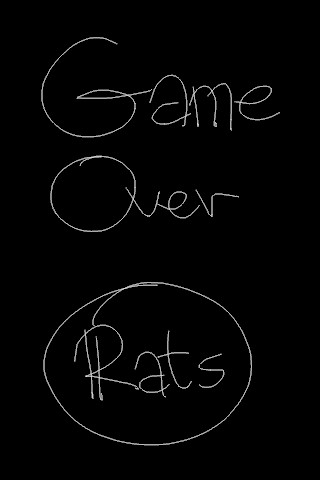 Game
Over
Rats